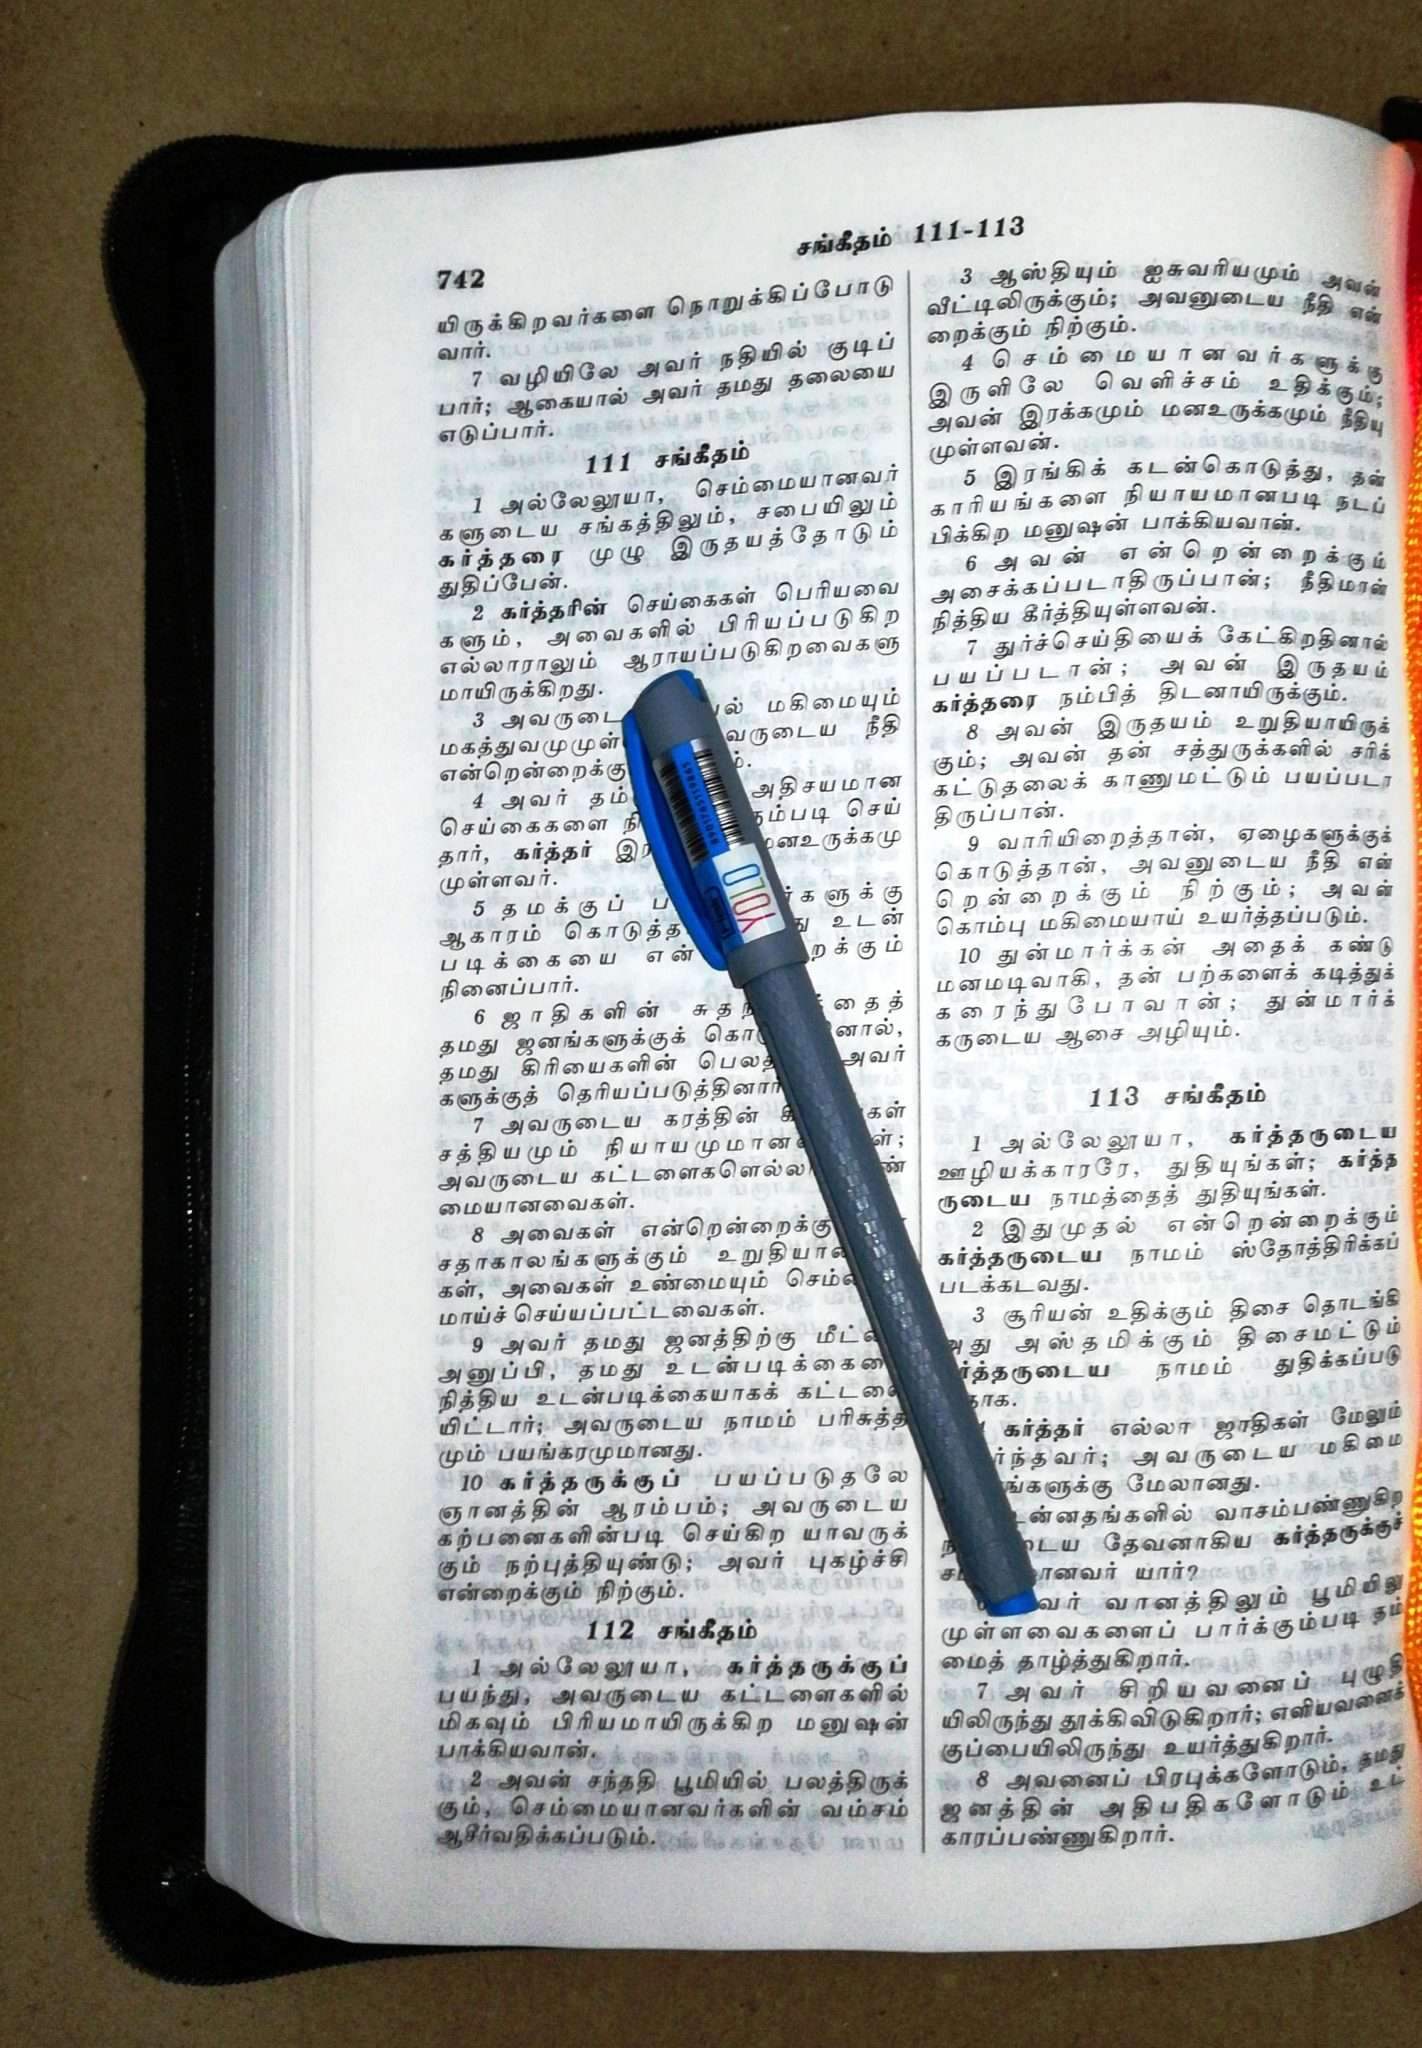 742
சங்கீதம் 111-113
யிருக்கிறவர்களை நொறுக்கிப்போடு
வார்.
7 வழியிலே அவர் நதியில் குடிப்
பார்; ஆகையால் அவர் தமது தலையை
எடுப்பார்.
111 சங்கீதம்
1 அல்லேலூயா, செம்மையானவர்
களுடைய சங்கத்திலும், சபையிலும்
கர்த்தரை முழு இருதயத்தோடும்
துதிப்பேன்.
2 கர்த்தரின் செய்கைகள் பெரியவை
களும், அவைகளில் பிரியப்படுகிற
எல்லாராலும் ஆராயப்படுகிறவைகளு
மாயிருக்கிறது.
3 மகிமையும்
நீதி
4 அவர் அதிசயமான
செய்கைகளை செய்
தார், கர்த்தர் மனஉருக்கமு
முள்ளவர்.
5 தமக்குப்
ஆகாரம் உடன்
படிக்கையை
நினைப்பார்.
6 ஜாதிகளின்
தமது ஜனங்களுக்குக்
தமது கிரியைகளின் அவர்
களுக்குத் தெரியப்படுத்தினார்
7 அவருடைய கரத்தின்
சத்தியமும்
அவருடைய
மையானவைகள்.
8 அவைகள்
சதாகாலங்களுக்கும்
கள், அவைகள் உண்மையும்
மாய்ச் செய்யப்பட்டவைகள்.
9 அவர் தமது ஜனத்திற்கு
அனுப்பி, தமது
நித்திய உடன்படிக்கையாகக்
யிட்டார்; அவருடைய நாமம் பரிசுத்த
மும் பயங்கரமுமானது.
10 கர்த்தருக்குப் பயப்படுதலே
ஞானத்தின் ஆரம்பம்; அவருடைய
கற்பனைகளின்படி செய்கிற யாவருக்
கும் நற்புத்தியுண்டு; அவர் புகழ்ச்சி
என்றைக்கும் நிற்கும்.
112 சங்கீதம்
1 அல்லேலூயா, கர்த்தருக்குப்
பயந்து, அவருடைய கட்டளைகளில்
மிகவும் பிரியமாயிருக்கிற மனுஷன்
பாக்கியவான்.
2 அவன் சந்ததி பூமியில் பலத்திருக்
கும், செம்மையானவர்களின் வம்சம்
ஆசீர்வதிக்கப்படும்.
3 ஆஸ்தியும் ஐசுவரியமும் அவன்
வீட்டிலிருக்கும்; அவனுடைய நீதி என்
றைக்கும் நிற்கும்.
4 செம்மையானவர்களுக்கு
இருளிலே வெளிச்சம் உதிக்கும்;
அவன் இரக்கமும் மனஉருக்கமும் நீதியு
முள்ளவன்.
5 இரங்கிக் கடன்கொடுத்து, தன்
காரியங்களை நியாயமானபடி நடப்
பிக்கிற மனுஷன் பாக்கியவான்.
6 அவன் என்றென்றைக்கும்
அசைக்கப்படாதிருப்பான்; நீதிமான்
நித்திய கீர்த்தியுள்ளவன்.
7 துர்ச்செய்தியைக் கேட்கிறதினால்
பயப்படான்; அவன் இருதயம்
கர்த்தரை நம்பித் திடனாயிருக்கும்.
8 அவன் இருதயம் உறுதியாயிருக்
கும்; அவன் தன் சத்துருக்களில் சரிக்
கட்டுதலைக் காணுமட்டும் பயப்படா
திருப்பான்.
9 வாரியிறைத்தான், ஏழைகளுக்குக்
கொடுத்தான், அவனுடைய நீதி என்
றென்றைக்கும் நிற்கும்; அவன்
கொம்பு மகிமையாய் உயர்த்தப்படும்.
10 துன்மார்க்கன் அதைக் கண்டு
மனமடிவாகி, தன் பற்களைக் கடித்துக்
கரைந்துபோவான்; துன்மார்க்
கருடைய ஆசை அழியும்.
113 சங்கீதம்
1 அல்லேலூயா, கர்த்தருடைய
ஊழியக்காரரே, துதியுங்கள்; கர்த்த
ருடைய நாமத்தைத் துதியுங்கள்.
2 இதுமுதல் என்றென்றைக்கும்
கர்த்தருடைய நாமம் ஸ்தோத்திரிக்கப்
படக்கடவது.
3 சூரியன் உதிக்கும் திசை தொடங்கி
அது அஸ்தமிக்கும் திசைமட்டும்
நாமம் துதிக்கப்படு
கர்த்தர் எல்லா ஜாதிகள் மேலும்
அவருடைய மகிமை
மேலானது.
வாசம்பண்ணுகிற
தேவனாகிய கர்த்தருக்குச்
யார்?
வானத்திலும் பூமியிலு
முள்ளவைகளைப் பார்க்கும்படி தம்
மைத் தாழ்த்துகிறார்.
7 அவர் சிறியவனைப் புழுதி
யிலிருந்து தூக்கிவிடுகிறார்; எளியவனைக்
குப்பையிலிருந்து உயர்த்துகிறார்.
8 அவனைப் பிரபுக்களோடும், தமது
ஜனத்தின் அதிபதிகளோடும் உட்
காரப்பண்ணுகிறார்.
YOLO